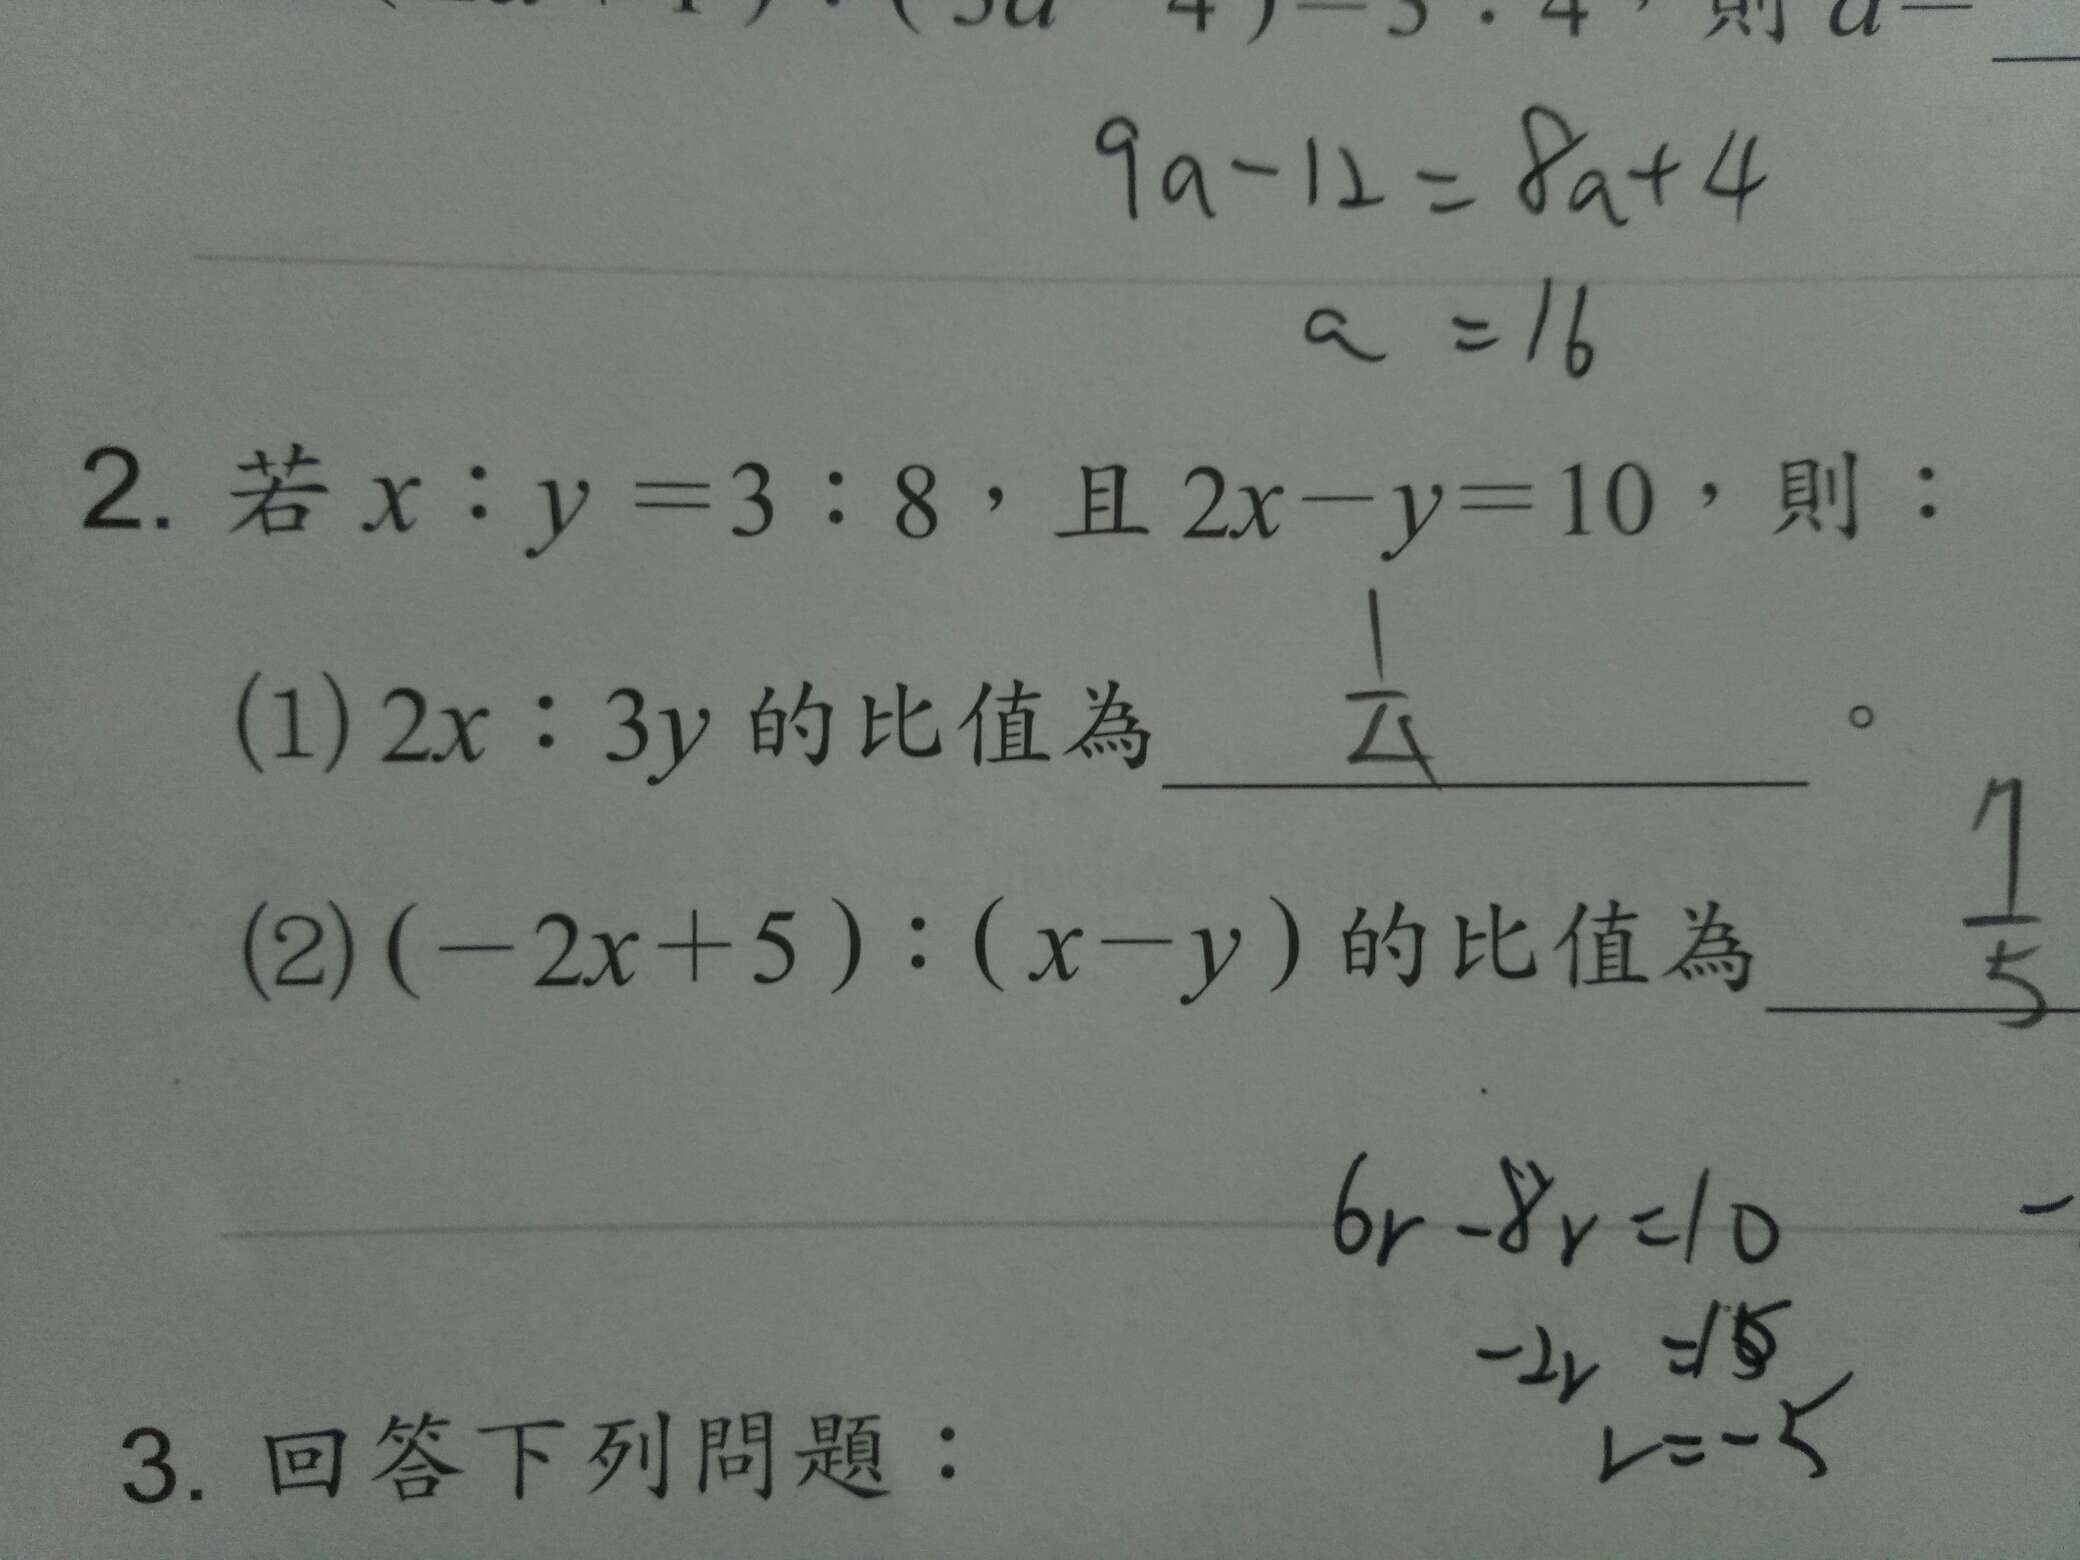 4)=3：4，則 a=
9a-12=8a+4
a =16
2. 若 x：y=3：8，且 2x-y=10，則：
(1) 2x：3y 的比值為 1/4 。
(2) (-2x+5)：(x-y) 的比值為 7/5
6r-8r=10
-2r =10
r=-5
3. 回答下列問題：